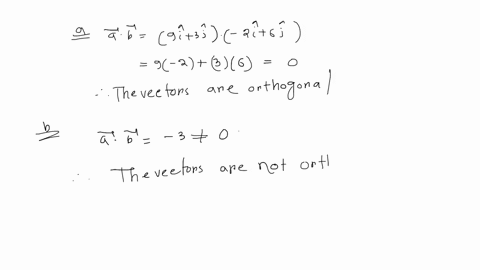 a a⃗·b⃗ = (9î+3ĵ)·(-2î+6ĵ)
= 9(-2)+(3)(6) = 0
∴ The vectors are orthogonal
b a⃗·b⃗ = -3 ≠ 0
∴ The vectors are not orth